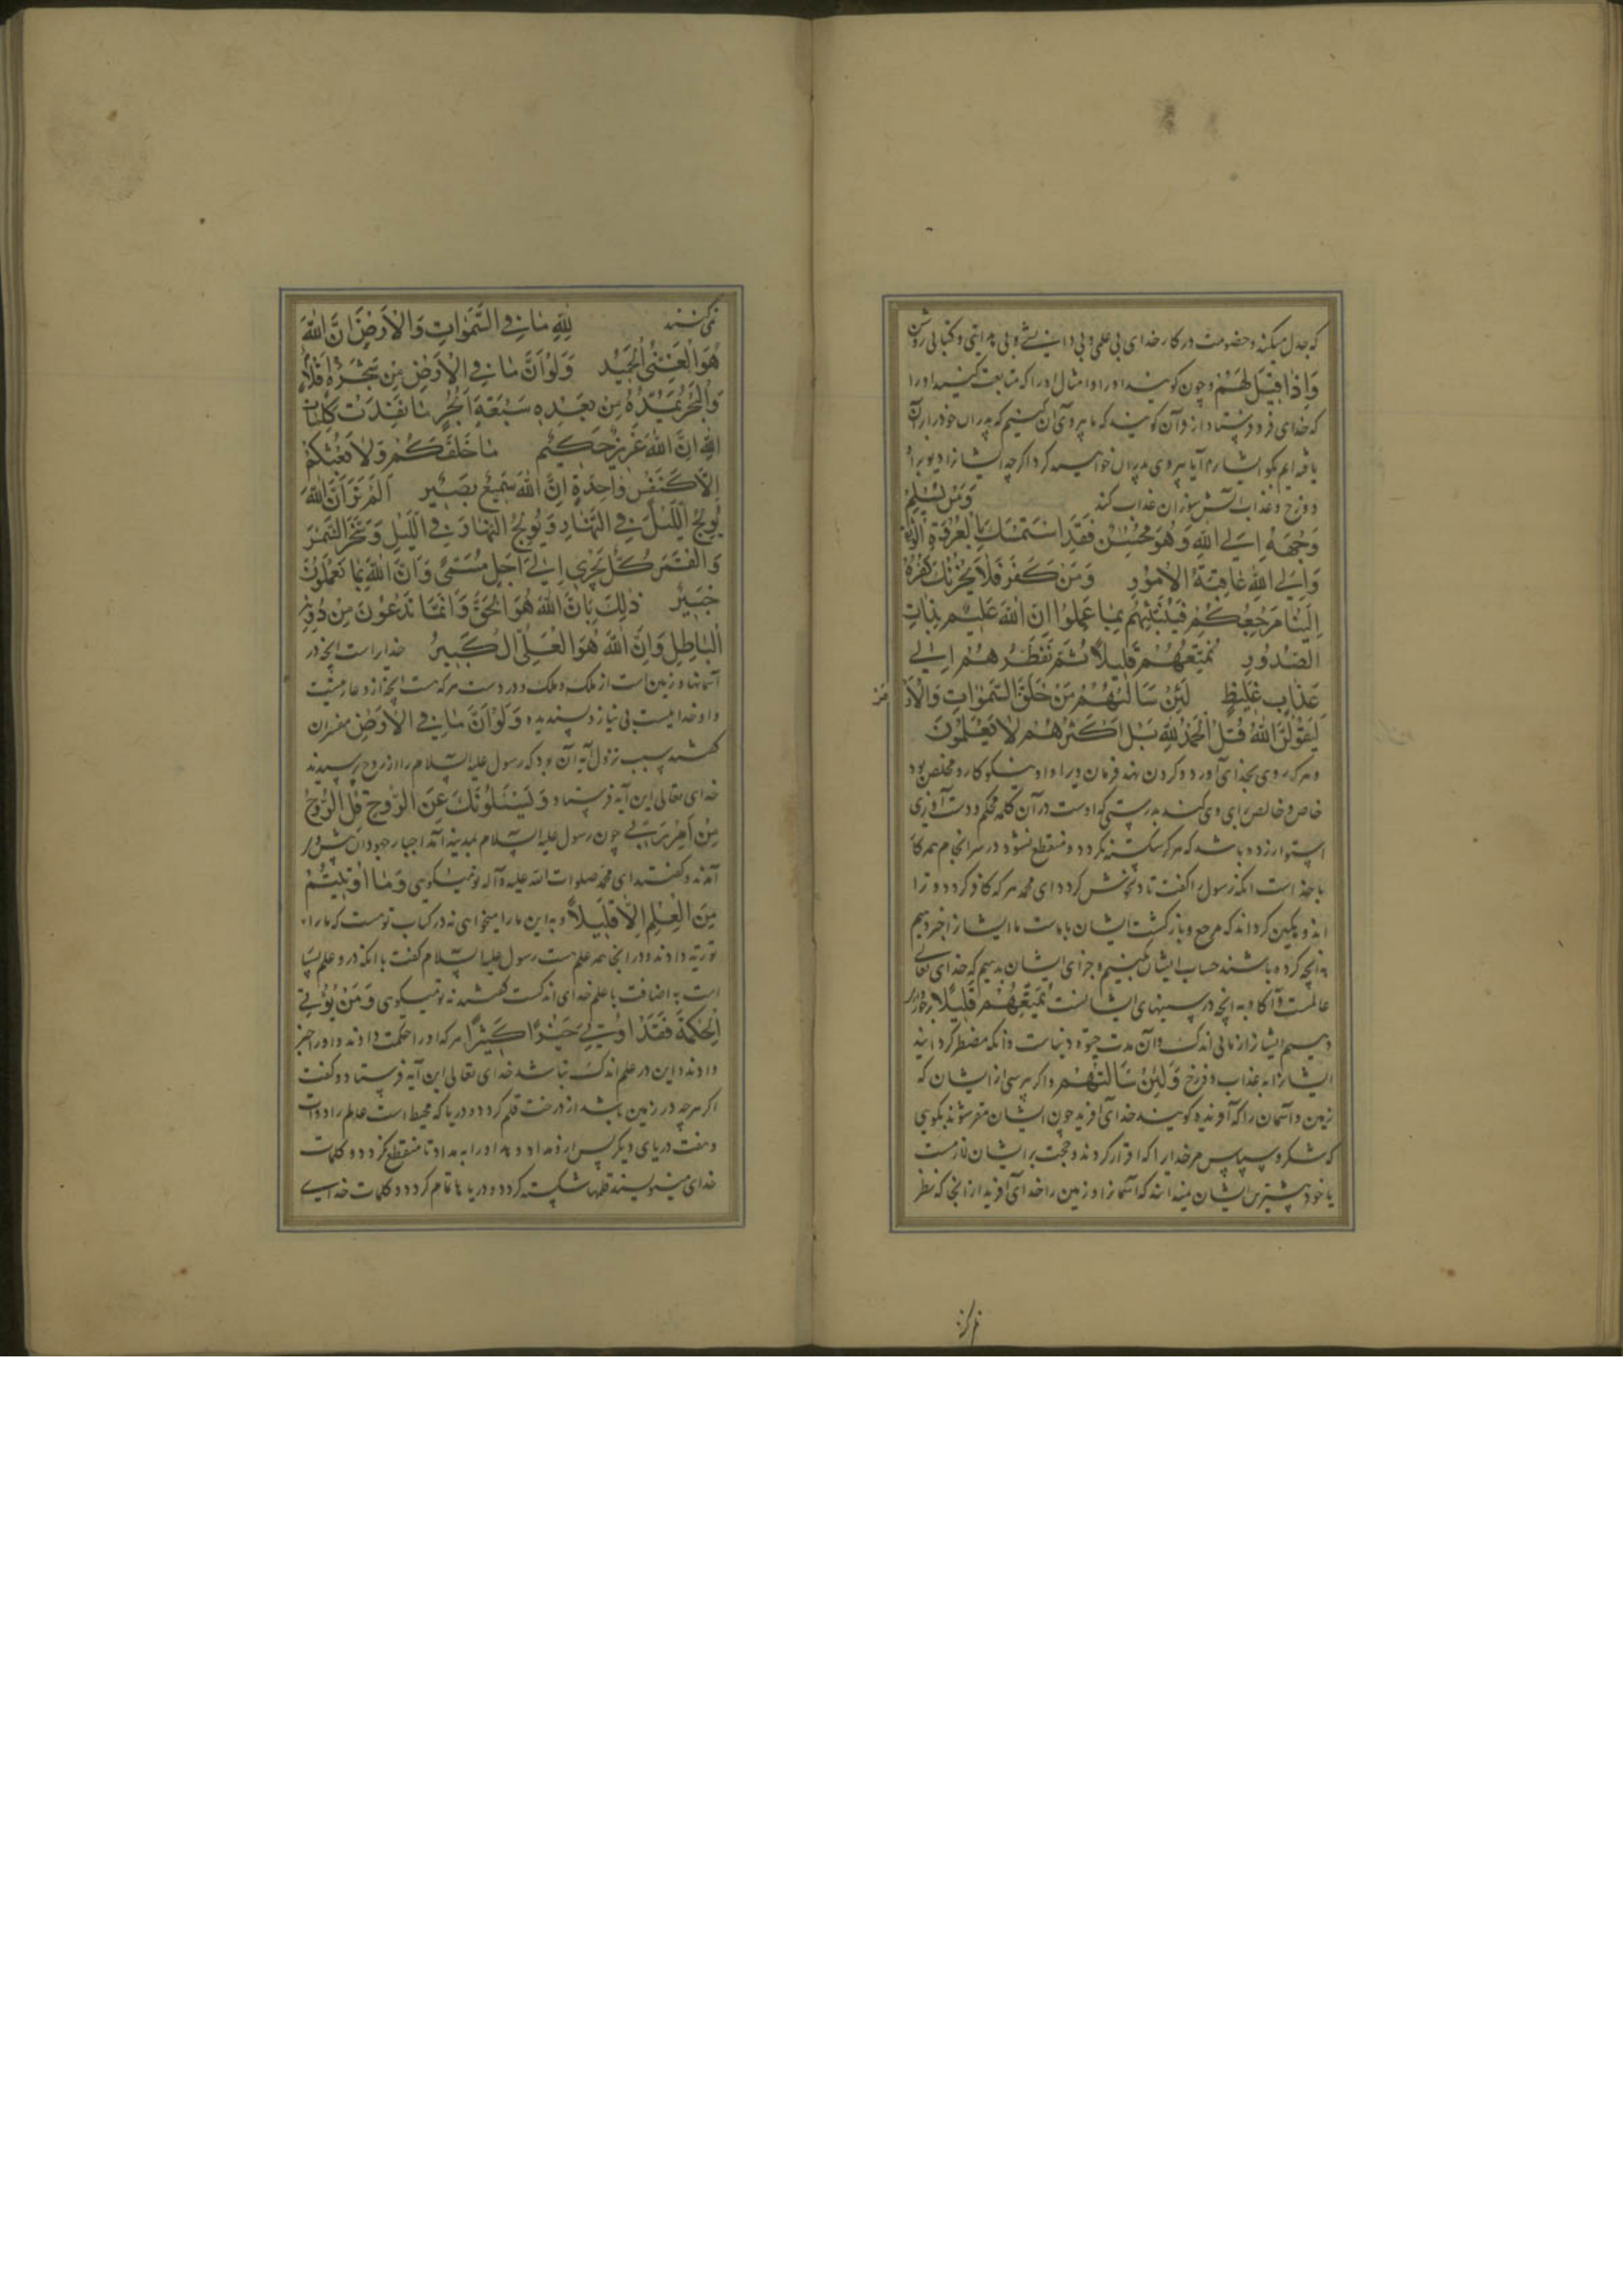 که جدل میکنند و خصومت در کار خدای بی علمی و بی دانشی و بی هدایتی و کتابی روشن
وَاِذَا قِيلَ لَهُمْ و چون کویند او را و امثال او را که متابعت کنید او را
که خدای فرو فرستاد از قرآن کویند که ما پیروی آن کنیم که پدران خود را بر آن
یافته ایم بکو ایشانرا آیا پیروی پدران خواهید کرد اکر چه ایشانرا دیو برا
دوزخ و عذاب آتش سوزان عذاب کند وَمَنْ يُسْلِمْ
وَجْهَهُ اِلَى اللهِ وَهُوَ مُحْسِنٌ فَقَدِ اسْتَمْسَكَ بِالْعُرْوَةِ الْوُثْقٰى
وَاِلَى اللهِ عَاقِبَةُ الْاُمُوْرِ وَمَنْ كَفَرَ فَلَا يَحْزُنْكَ كُفْرُهُ
اِلَيْنَا مَرْجِعُكُمْ فَيُنَبِّئُهُمْ بِمَا عَمِلُوا اِنَّ اللهَ عَلِيمٌ بِذَاتِ
الصُّدُورِ نُمَتِّعُهُمْ قَلِيلًا ثُمَّ نَضْطَرُّهُمْ اِلٰى
عَذَابٍ غَلِيظٍ لَئِنْ سَاَلْتَهُمْ مَنْ خَلَقَ السَّمٰوَاتِ وَالْاَرْضَ
لَيَقُوْلُنَّ اللهُ قُلِ الْحَمْدُ لِلّٰهِ بَلْ اَكْثَرُهُمْ لَا يَعْلَمُوْنَ
و هر که روی بخدای آورد و کردن نهد فرمان ویرا و او نیکو کار و مخلص بود
خاص و خالص برای وی کند بدرستی که او دست در آن کلمه محکم و دست آویزی
استوار زده باشد که هرکز شکسته نکردد و منقطع نشود و در سرانجام همه کا
با خداست انکه رسول را کفت تا دلخوش کردد ای محمد هر که کافر کردد و ترا
اندوهکین کرداند که مرجع و بازکشت ایشان با ماست ما ایشانرا خبر دهیم
بانچه کرده باشند حساب ایشان بکنیم و جزای ایشان بدهیم که خدای تعالی
عالمست و آکاه به انچه در سینهای ایشانست نُمَتِّعُهُمْ قَلِيلًا برخوردار
دهیم ایشانرا زمانی اندک و آن مدت حیوة دنیاست و انکه مضطر کردانید
ایشانرا به عذاب دوزخ وَلَئِنْ سَاَلْتَهُمْ و اکر پرسی از ایشان که
زمین و آسمان را که آفریده کویند خدای آفرید چون ایشان مقر شوند بکوی
که شکر و سپاس مر خدایرا که اقرار کردند و حجت بر ایشان لازمست
یا خود بیشترین ایشان نمیدانند که آسمانرا و زمین را خدای آفرید از انجا که نظر
نمی کنند لِلّٰهِ مَا فِي السَّمٰوَاتِ وَالْاَرْضِ اِنَّ اللهَ
هُوَ الْغَنِيُّ الْحَمِيْدُ وَلَوْ اَنَّ مَا فِي الْاَرْضِ مِنْ شَجَرَةٍ اَقْلَامٌ
وَالْبَحْرُ يَمُدُّهُ مِنْ بَعْدِهِ سَبْعَةُ اَبْحُرٍ مَا نَفِدَتْ كَلِمَاتُ
اللهِ اِنَّ اللهَ عَزِيزٌ حَكِيْمٌ مَا خَلْقُكُمْ وَلَا بَعْثُكُمْ
اِلَّا كَنَفْسٍ وَاحِدَةٍ اِنَّ اللهَ سَمِيعٌ بَصِيْرٌ اَلَمْ تَرَ اَنَّ اللهَ
يُوْلِجُ اللَّيْلَ فِي النَّهَارِ وَيُوْلِجُ النَّهَارَ فِي اللَّيْلِ وَسَخَّرَ الشَّمْسَ
وَالْقَمَرَ كُلٌّ يَجْرِي اِلٰى اَجَلٍ مُسَمًّى وَاَنَّ اللهَ بِمَا تَعْمَلُوْنَ
خَبِيْرٌ ذٰلِكَ بِاَنَّ اللهَ هُوَ الْحَقُّ وَاَنَّمَا تَدْعُوْنَ مِنْ دُوْنِهِ
الْبَاطِلُ وَاَنَّ اللهَ هُوَ الْعَلِيُّ الْكَبِيْرُ خدایراست انچه در
آسمانها و زمین است از ملک و ملک و در دست هر که هست انچه ازو عاریتست
و او خداییست بی نیاز و پسندیده وَلَوْ اَنَّ مَا فِي الْاَرْضِ مفسران
کفتند سبب نزول آیه آن بود که رسول علیه السلام را از روح پرسیدند
خدای تعالی این آیه فرستاد وَيَسْئَلُوْنَكَ عَنِ الرُّوْحِ قُلِ الرُّوْحُ
مِنْ اَمْرِ رَبِّي چون رسول علیه السلام بمدینه آمد احبار جهودان پیش او
آمدند و کفتند ای محمد صلوات الله علیه وآله تو میکویی وَمَا اُوْتِيْتُمْ
مِنَ الْعِلْمِ اِلَّا قَلِيْلًا و به این ما را میخواهی نه در کتاب تو هست که ما را
توریة دادند و در انجا همه علم هست رسول علیه السلام کفت با انکه درو علم بسیا
است به اضافت با علم خدای اندکست کفتند نه تو میکویی وَمَنْ يُؤْتَ
الْحِكْمَةَ فَقَدْ اُوْتِيَ خَيْرًا كَثِيْرًا هر که او را حکمت دادند او را خیر
دادند و این در علم اندک نباشد خدای تعالی این آیه فرستاد و کفت
اکر هر چه در زمین باشد از درخت قلم کردد و دریا که محیط است عالم را دوات
و هفت دریای دیکر پس ازو مداد و مدد او را به مداد تا منقطع نکردد و کلمات
خدای مینویسند قلمها شکسته کردد و دریاها تمام کردد و کلمات خدای